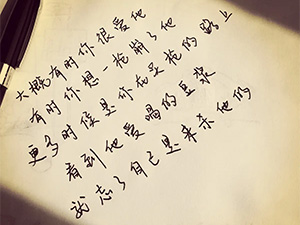 大概有时你很爱他
有时你想一枪崩了他
更多时候是你在买枪的路上
看到他爱喝的豆浆
就忘了自己是来杀他的